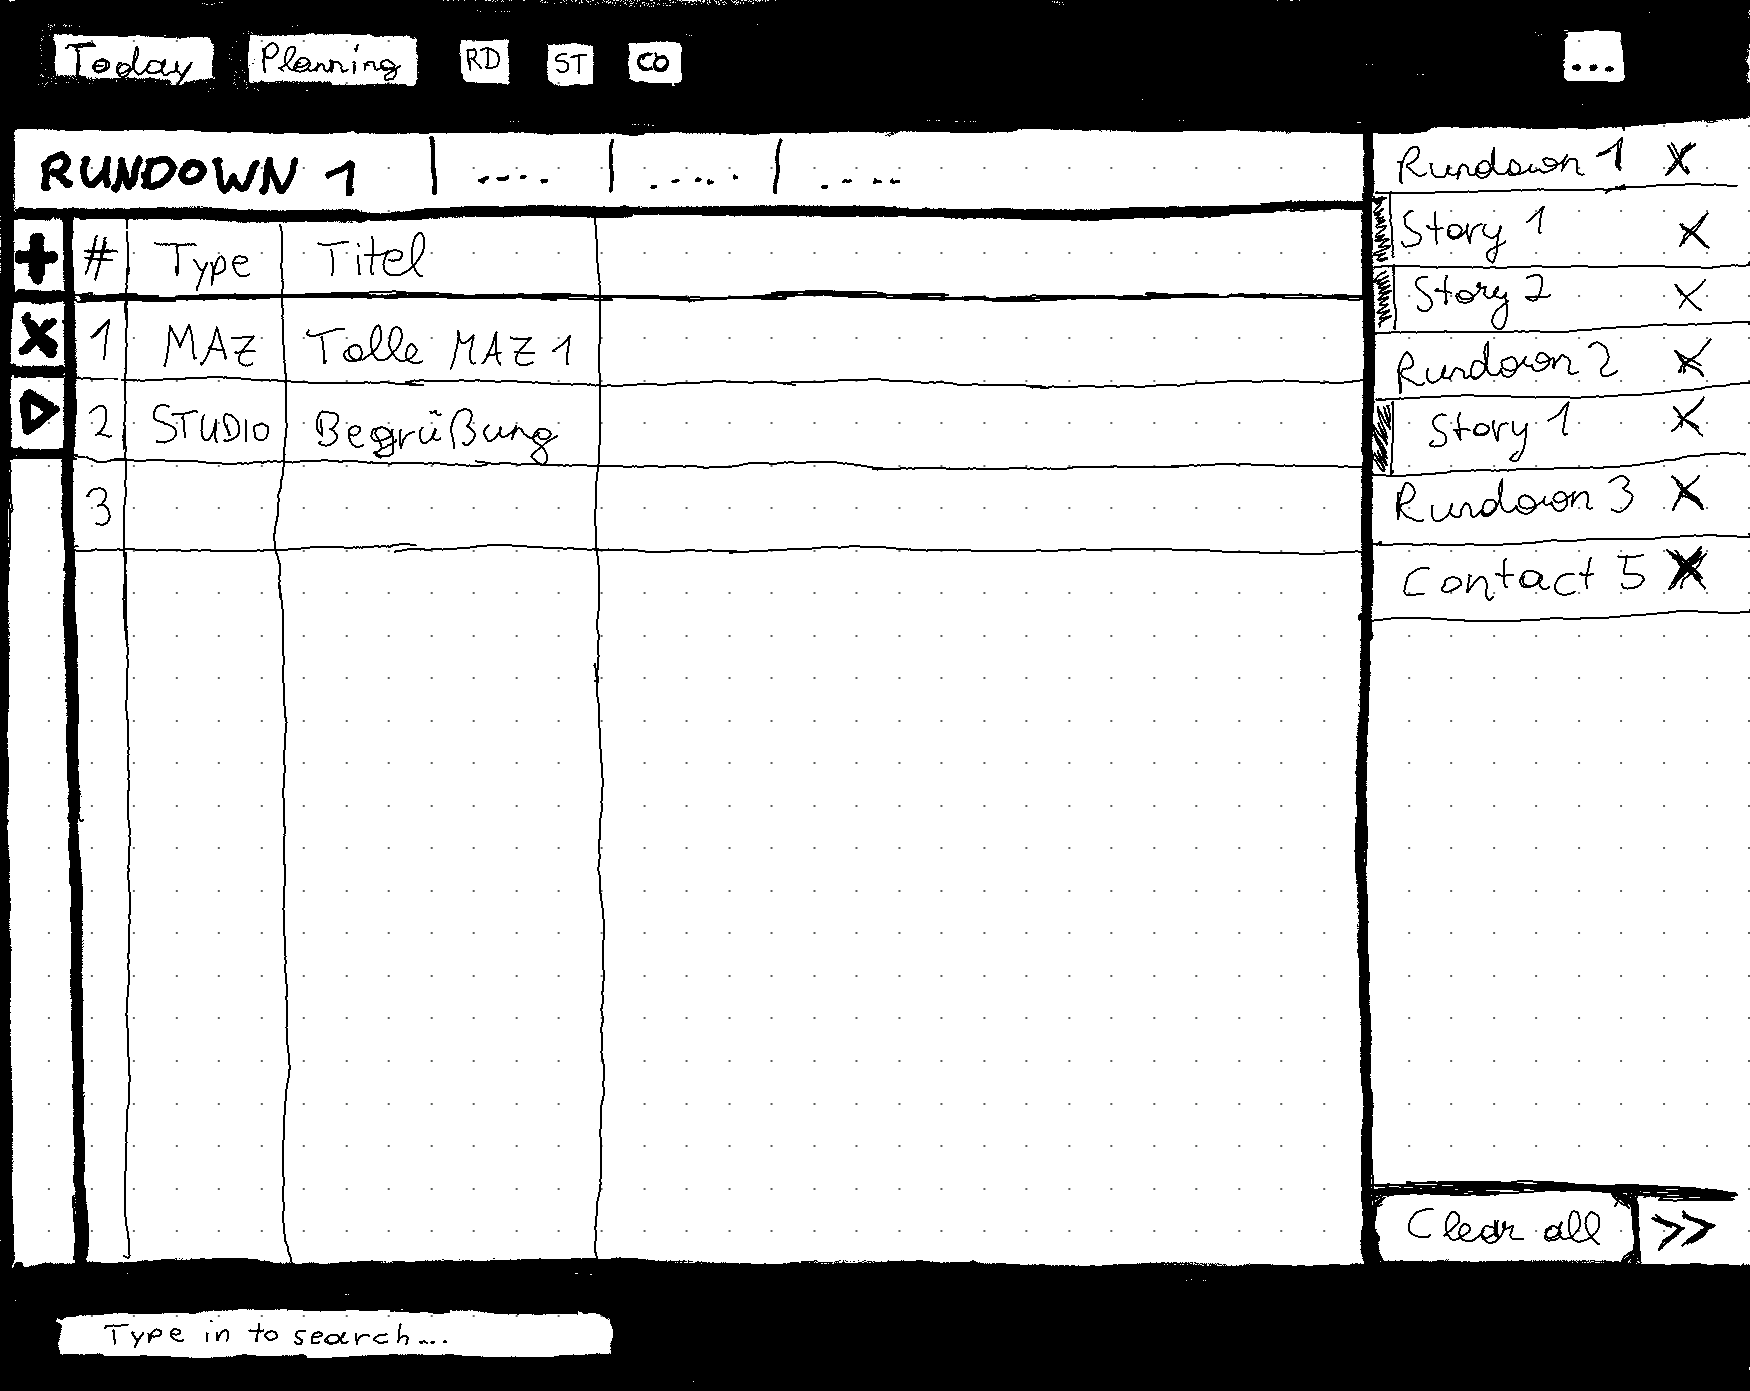 Today Planning RD ST CO ...
RUNDOWN 1 | .... | ..... | ....
# Type Titel
1 MAZ Tolle MAZ 1
2 STUDIO Begrüßung
3
Rundown 1 X
Story 1 X
Story 2 X
Rundown 2 X
Story 1 X
Rundown 3 X
Contact 5 X
Clear all >>
Type in to search...